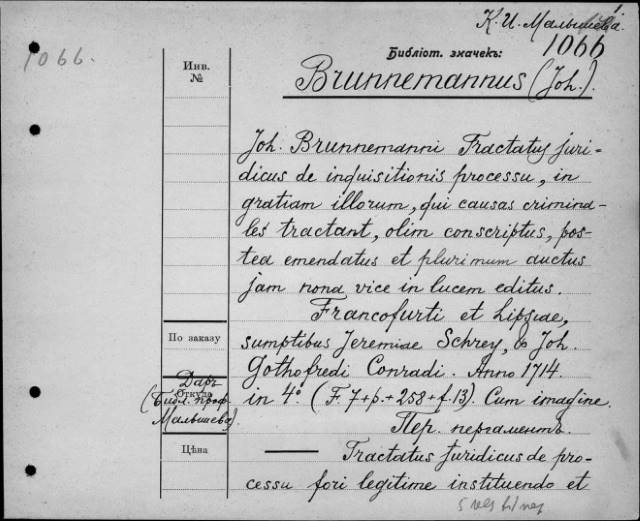 К. И. Малышева.
1066.
Библіот. значекъ:
1066
Инв.
№
Brunnemannus (Joh.).
Joh. Brunnemanni Tractatus juri-
dicus de inquisitionis processu, in
gratiam illorum, qui causas crimina-
les tractant, olim conscriptus, pos-
tea emendatus et plurimum auctus
jam nona vice in lucem editus.
Francofurti et Lipsiae,
По заказу
sumptibus Jeremiae Schrey, & Joh.
Gothofredi Conradi. Anno 1714.
Даръ
Откуда
(Библ. проф.
Малышева).
in 4° (F. 7+p.+258+f.13). Cum imagine.
Пер. пергаментъ.
Цѣна
— Tractatus juridicus de pro-
cessu fori legitime instituendo et